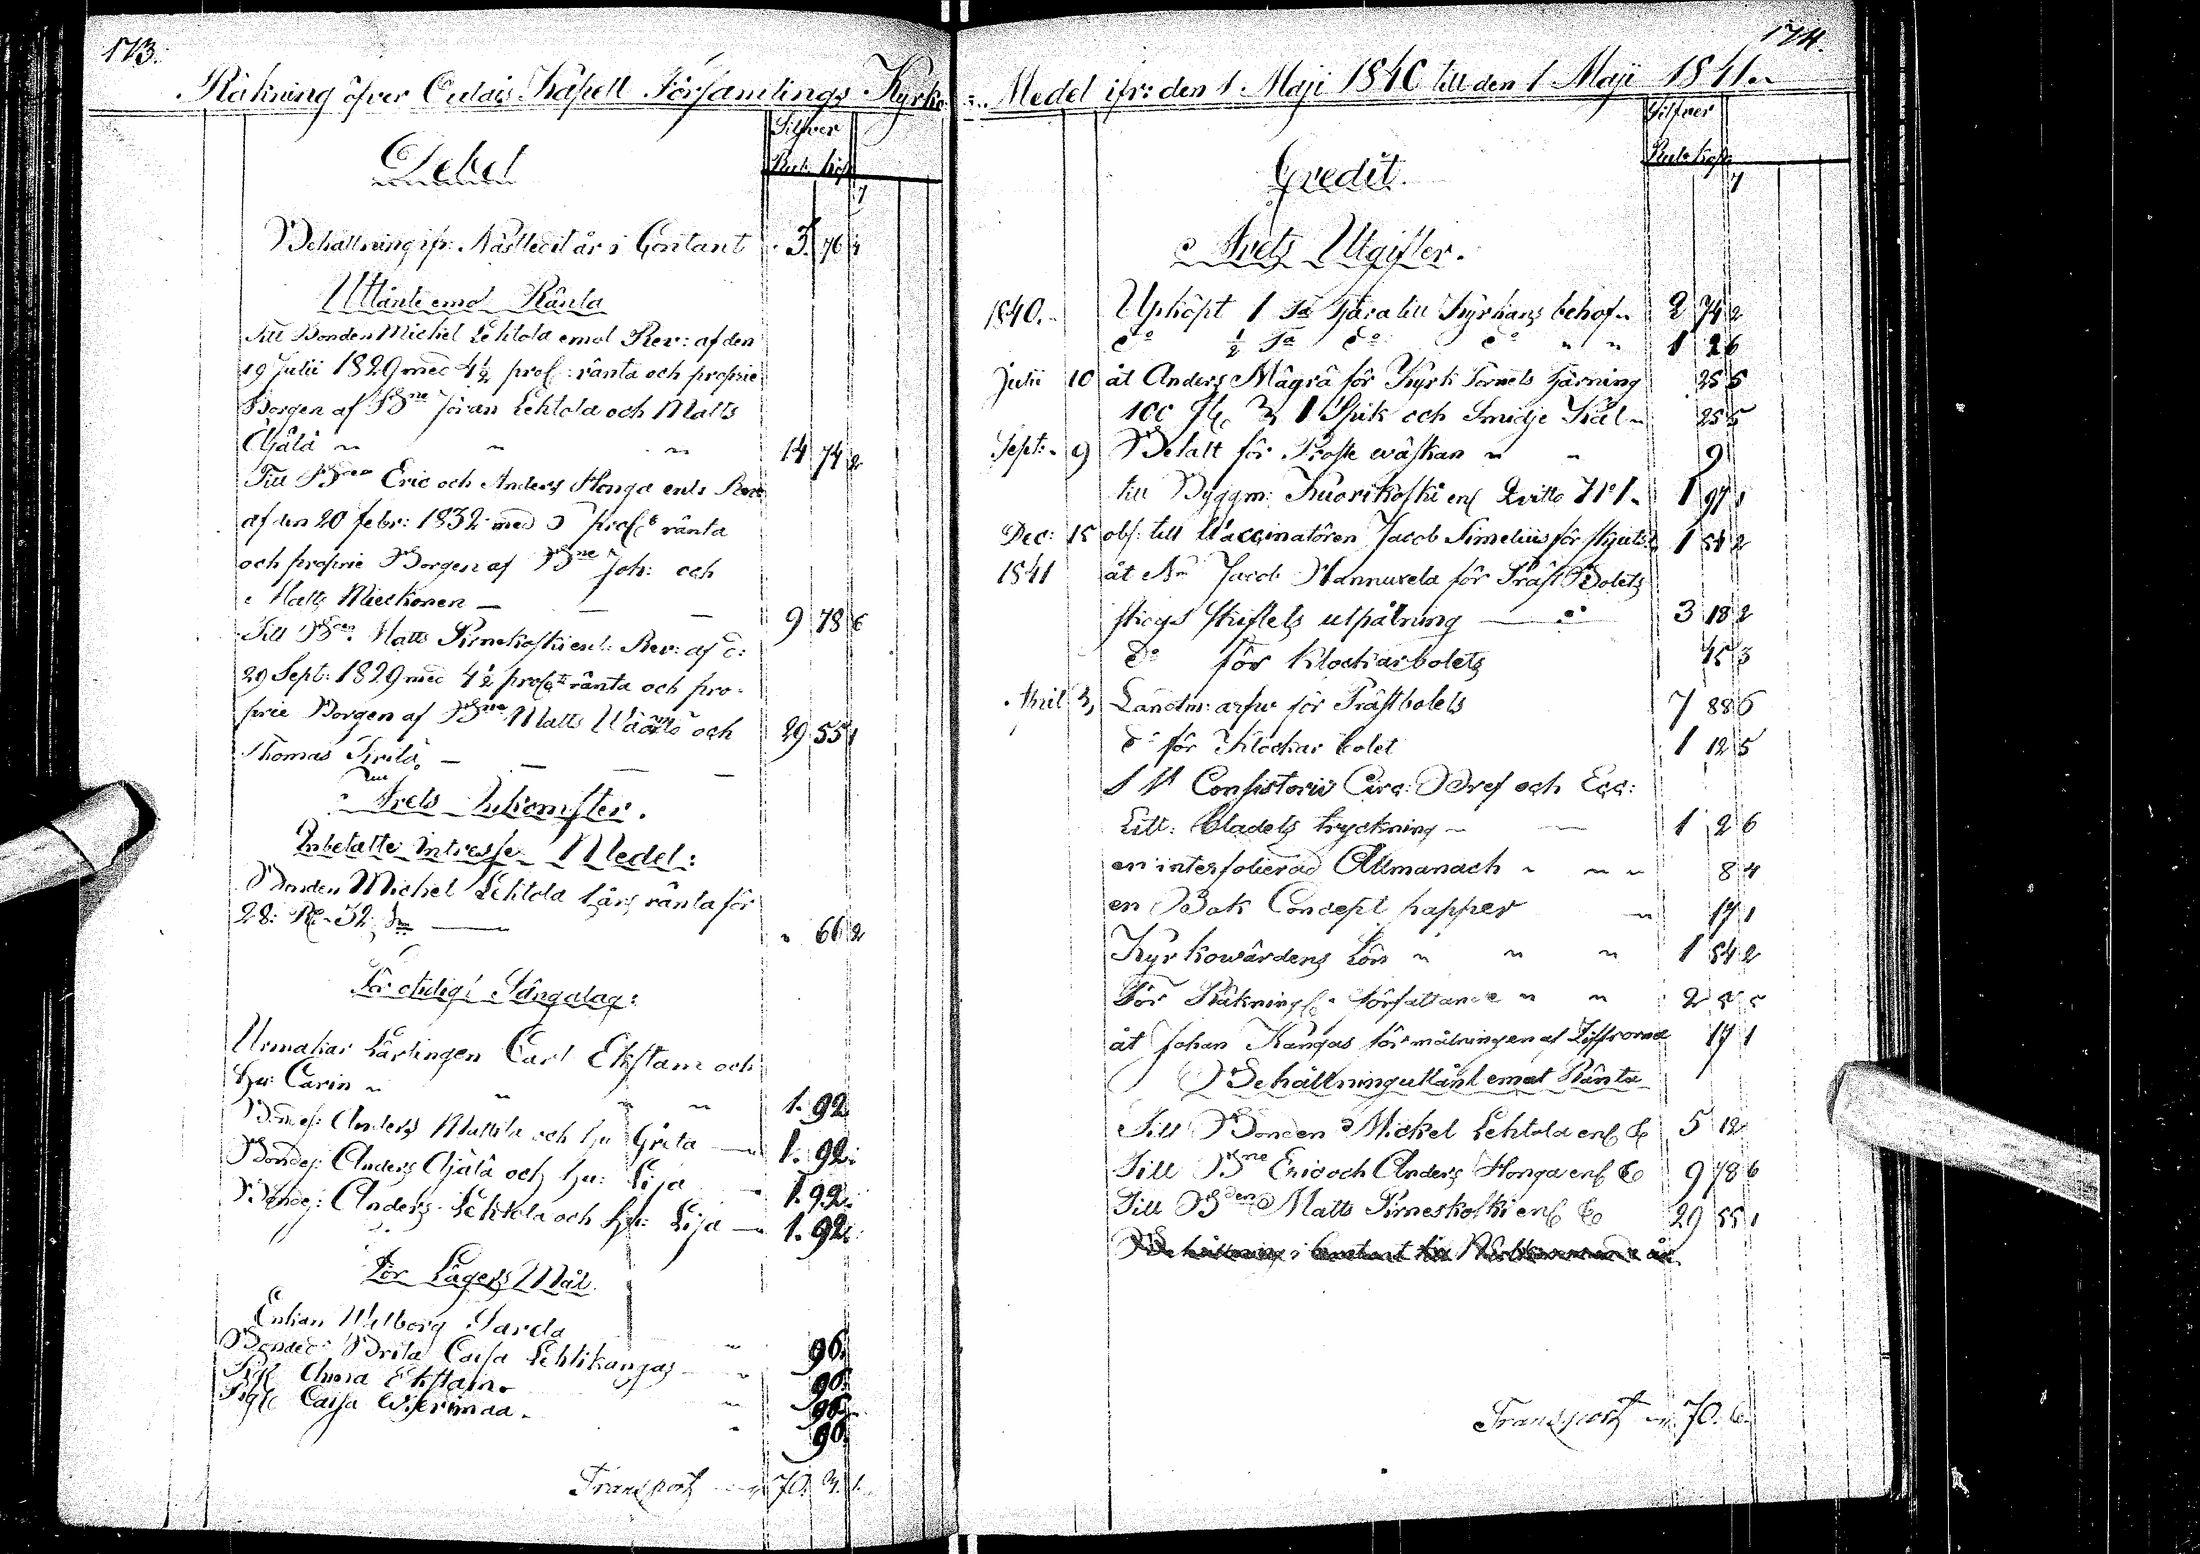 173.
Räkning öfver Oulais Kapell Församlings Kyrko
Debet
Silfver
Rub. kop. 7
Behållning ifr: Nästledit år i Contant 3. 76
Utlånte emot Ränta
Till Bonden Michel Lehtola emot Rev: af den
19 Julii 1829 med 4½ proC: ränta och proprie
Borgen af Bne Jöran Lehtola och Matts
Ojala " " " 14 74 2
Till Eric och Anders Honga enl: Rev:
af den 20 febr: 1832 med proCt ränta
och proprie Borgen af Bne Joh: och
Matts Mieskonen — — — 9 78 6
Till Matts Pirneskoski enl: Rev: af d:
29 Sept: 1829 med 4½ proCt ränta och pro-
prie Borgen af Bne Matts och
Thomas — — — — 29 55 1
Årets Inkomster.
Inbetalte Intresse Medel:
Bonden Michel Lehtola 1 års ränta för
28: R. 32 — " 66 2
För otidigt Sängalag:
Urmakar Lärlingen Carl Ekstam och
hu: Carin " " " " 1. 92.
Bondes: Anders Mattila och hu Greta — 1. 92.
Bondes: Anders Ojala och hu: Lisa 1. 92.
Bondes: Anders Lehtola och hu: Lisa — 1. 92.
För Lägersmål.
Enkan Walborg " 96.
Bonded: Brita Caisa Lehtikangas — " 96.
Pig: Anna Ekstam " 96.
Pig: Caisa " 96.
Transport — 70.
174.
Medel ifr: den 1 Maji 1840 till den 1 Maji 1841.
Credit.
Silfver
Rub. kop. 7
Årets Utgifter.
1840. Upköpt 1 Ta Tjära till Kyrkans behof 2 74 2
do ½ Ta do do " " 1 2 6
Julii 10 åt Anders Mägrä för Kyrk Tornets Tjärning 25 5
100 st. 3 Spik och Smidje Kål 25 5
Sept: 9 Betalt för Proste wäskan " " 9
till Byggm: Kuorikoski enl Qvitto No 1. 1 97 1
Dec: 15 obs: till Vaccinatören Jacob Simelius för skjuts 1 54 2
1841 åt Bn Jacob Hannuxela för Präst Bolets
skogs skiftets utpålning — 3 18 2
do för Klockarbolets 45 3
April 3, Landtm: arfw för Prästbolets 7 88 6
do för Klockar bolet 1 12 5
Consistorii Circ: Bref och Ecc:
Litt: bladets tryckning — — 1 2 6
en interfolierad Allmanach " " " 8 4
en Bok Concept papper " 17 1
Kyrkowärdens Lön " " " 1 54 2
För Räkning: författande " " 2
åt Johan Kangas för målningen af Ziffrorna 17 1
Behållning utlånt emot Ränta
Till Bonden Mickel Lehtola enl &c 5 12
Till Bne Eric och Anders Honga enl &c 9 78 6
Till Bden Matts Pirneskoski enl &c 29 55 1
Behållning i Contant till Nästkommande år
Transport 70. 6